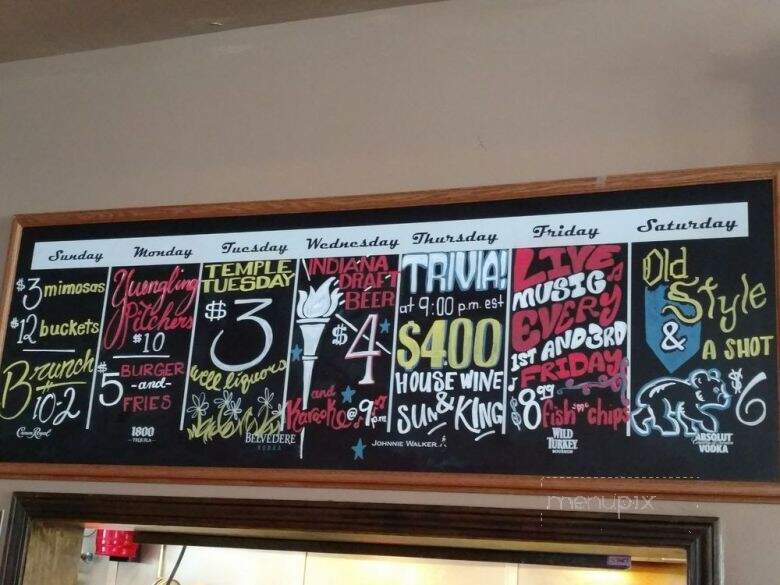 Sunday
$3 mimosas
$12 buckets
Brunch
10-2
Crown Royal
Monday
Yuengling
Pitchers
$10
$5 BURGER
-and-
FRIES
1800
TEQUILA
Tuesday
TEMPLE
TUESDAY
$3
well liquors
BELVEDERE
VODKA
Wednesday
INDIANA
DRAFT
BEER
$4
and
Kareoke @ 9pm
Thursday
TRIVIA!
at 9:00 p.m. est
$400
HOUSE WINE
&
SUN KING
JOHNNIE WALKER
Friday
LIVE
MUSIG
EVERY
1ST AND 3RD
FRIDAY
$8.99
fish 'n' chips
WILD
TURKEY
BOURBON
Saturday
Old
Style
&
A SHOT
$6
ABSOLUT
VODKA
menupix